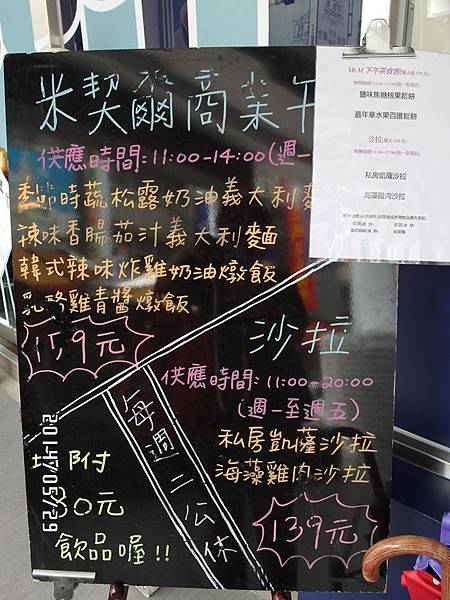 米契爾商業午
供應時間:11:00-14:00(週一
季節時蔬松露奶油義大利麵
辣味香腸茄汁義大利麵
韓式辣味炸雞奶油燉飯
乳酪雞青醬燉飯
159元
沙拉
供應時間:11:00-20:00
(週一至週五)
私房凱薩沙拉
海藻雞肉沙拉
139元
每週二公休
均附
30元
飲品喔!!
Mr.M 下午茶食譜(單人份 139元)
鹽味焦糖核果鬆餅
嘉年華水果百匯鬆餅
沙拉(單人 139元)
私房凱薩沙拉
海藻雞肉沙拉
2014/05/29